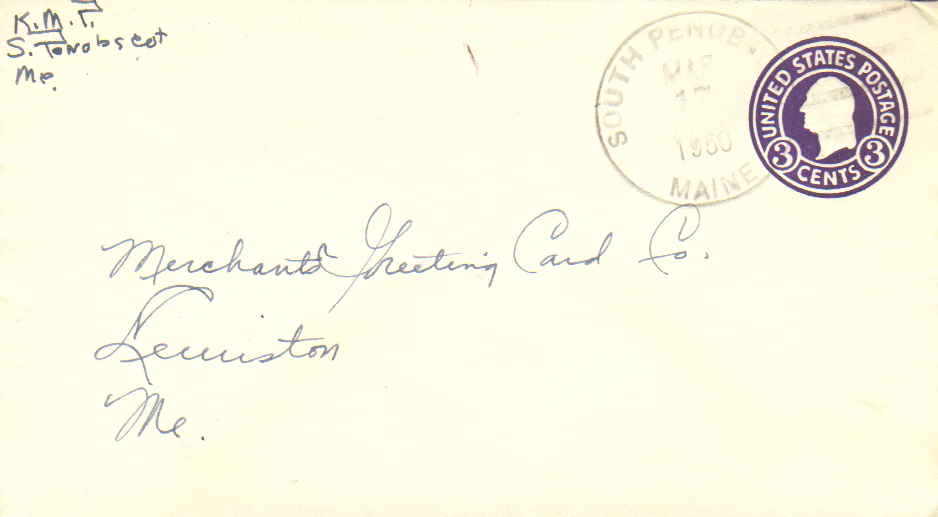 K.M.T.
S. Penobscot
Me.
SOUTH PENOB
MAR
17
1950
MAINE
UNITED STATES POSTAGE
3 CENTS 3
Merchants Greeting Card Co.
Lewiston
Me.